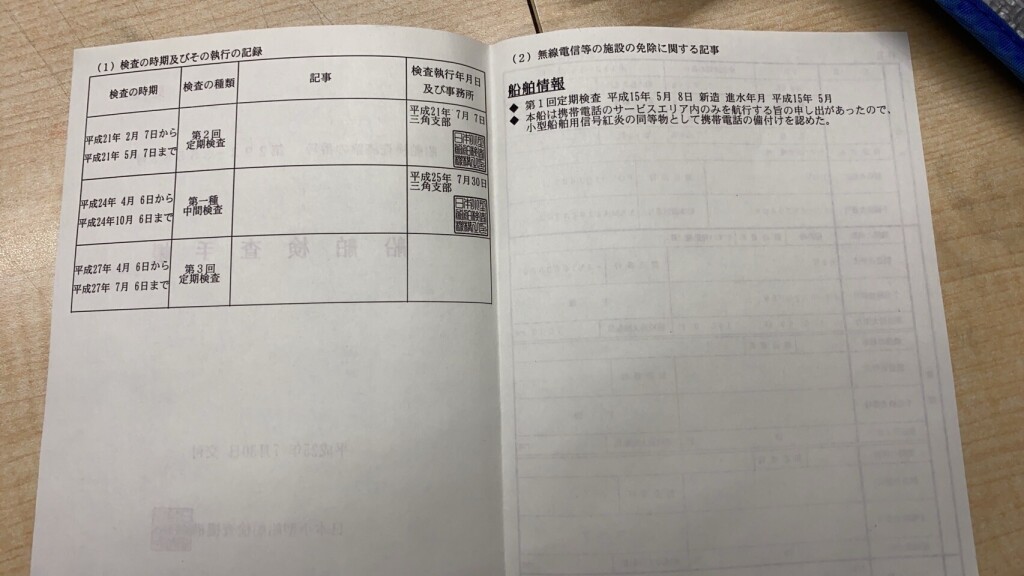 (1) 検査の時期及びその執行の記録
検査の時期
検査の種類
記事
検査執行年月日
及び事務所
平成21年 2月 7日から
平成21年 5月 7日まで
第2回
定期検査
平成21年 7月 7日
三角支部
平成24年 4月 6日から
平成24年10月 6日まで
第一種
中間検査
平成25年 7月30日
三角支部
平成27年 4月 6日から
平成27年 7月 6日まで
第3回
定期検査
(2) 無線電信等の施設の免除に関する記事
船舶情報
◆ 第1回定期検査 平成15年 5月 8日 新造 進水年月 平成15年 5月
◆ 本船は携帯電話のサービスエリア内のみを航行する旨の申し出があったので、
小型船舶用信号紅炎の同等物として携帯電話の備付けを認めた。
船舶検査手
平成25年 7月30日 交付